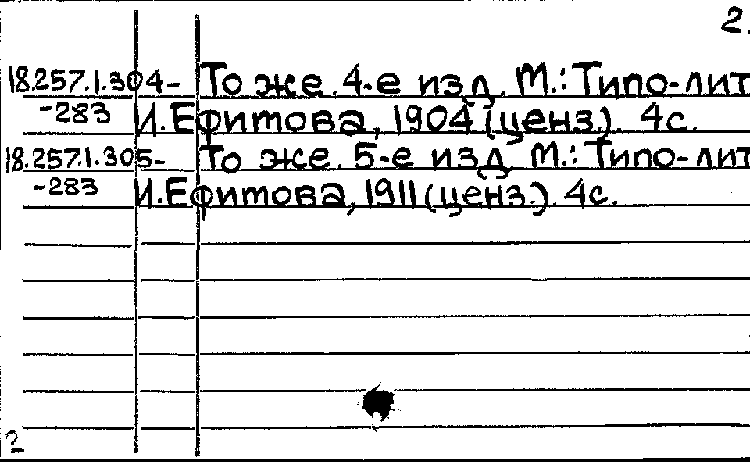 2.
18.257.1.304- То же. 4-е изд. М.: Типо-лит
-283 И.Ефитова, 1904 (ценз.). 4с.
18.257.1.305- То же. 5-е изд. М.: Типо-лит
-283 И.Ефитова, 1911 (ценз.). 4с.
2